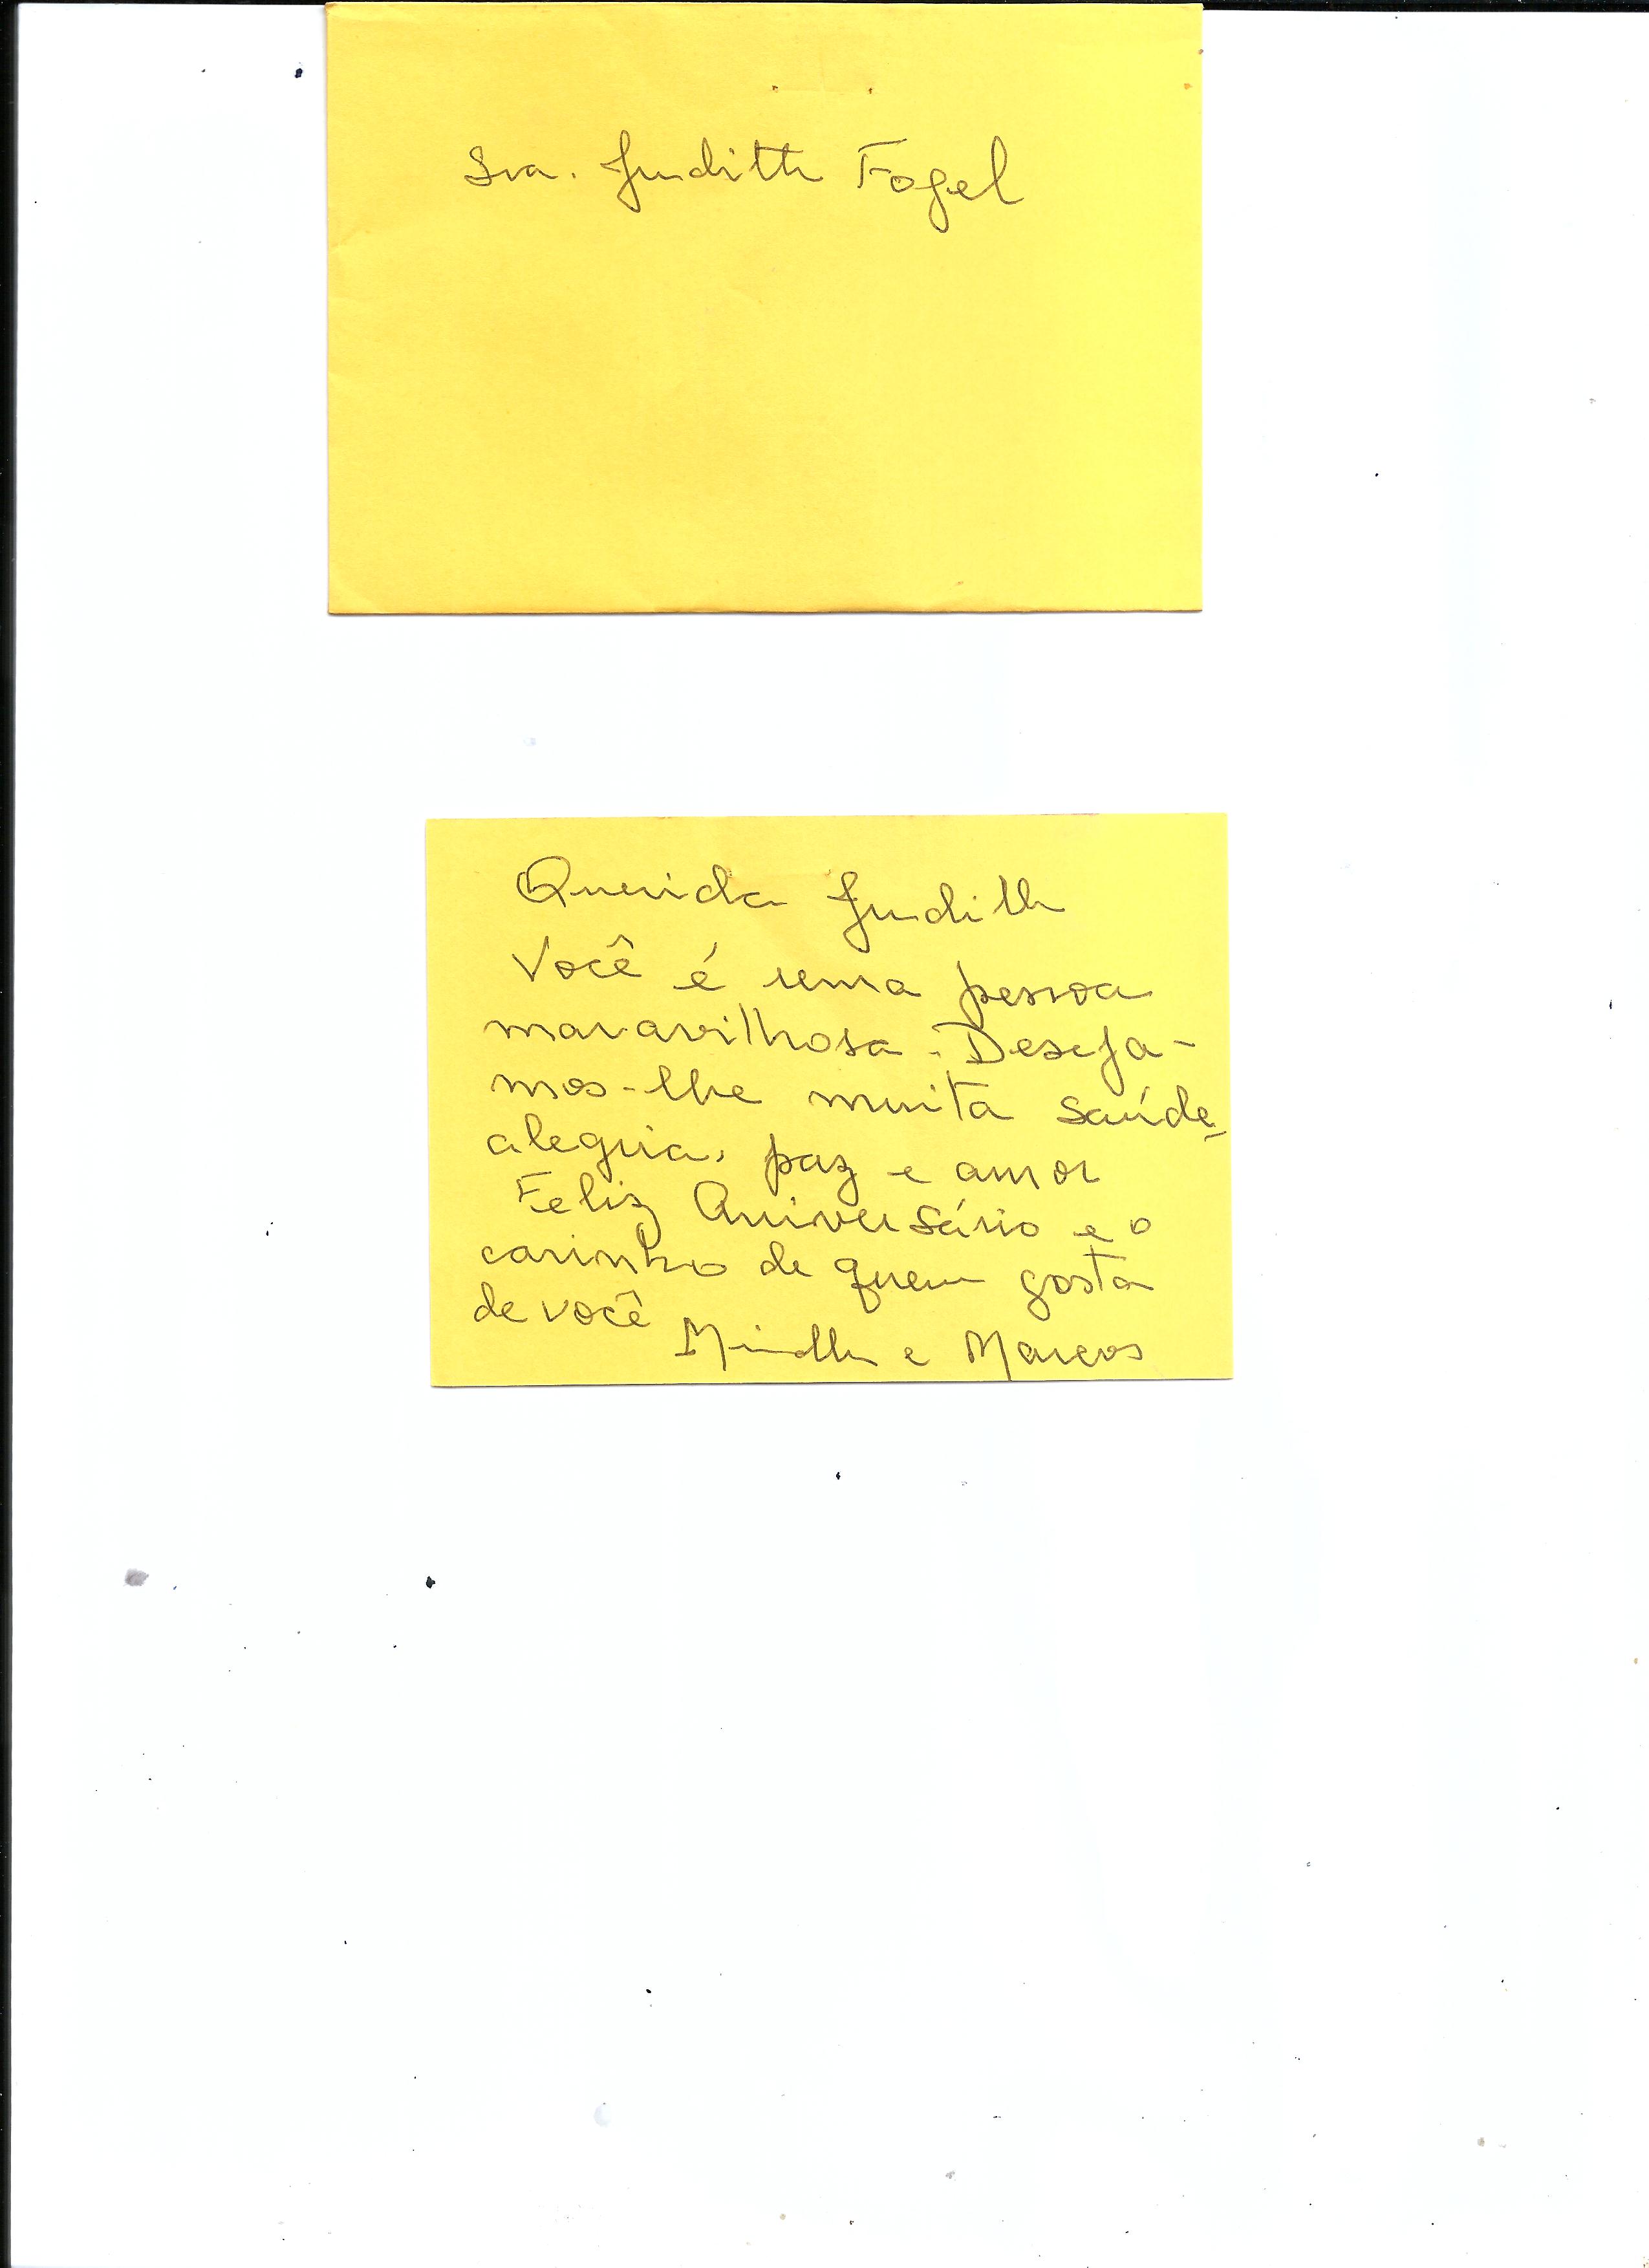 Sra. Judith Fogel
Querida Judith
Você é uma pessoa
maravilhosa. Deseja-
mos-lhe muita saúde,
alegria, paz e amor
Feliz Aniversário e o
carinho de quem gosta
de você
e Marcos